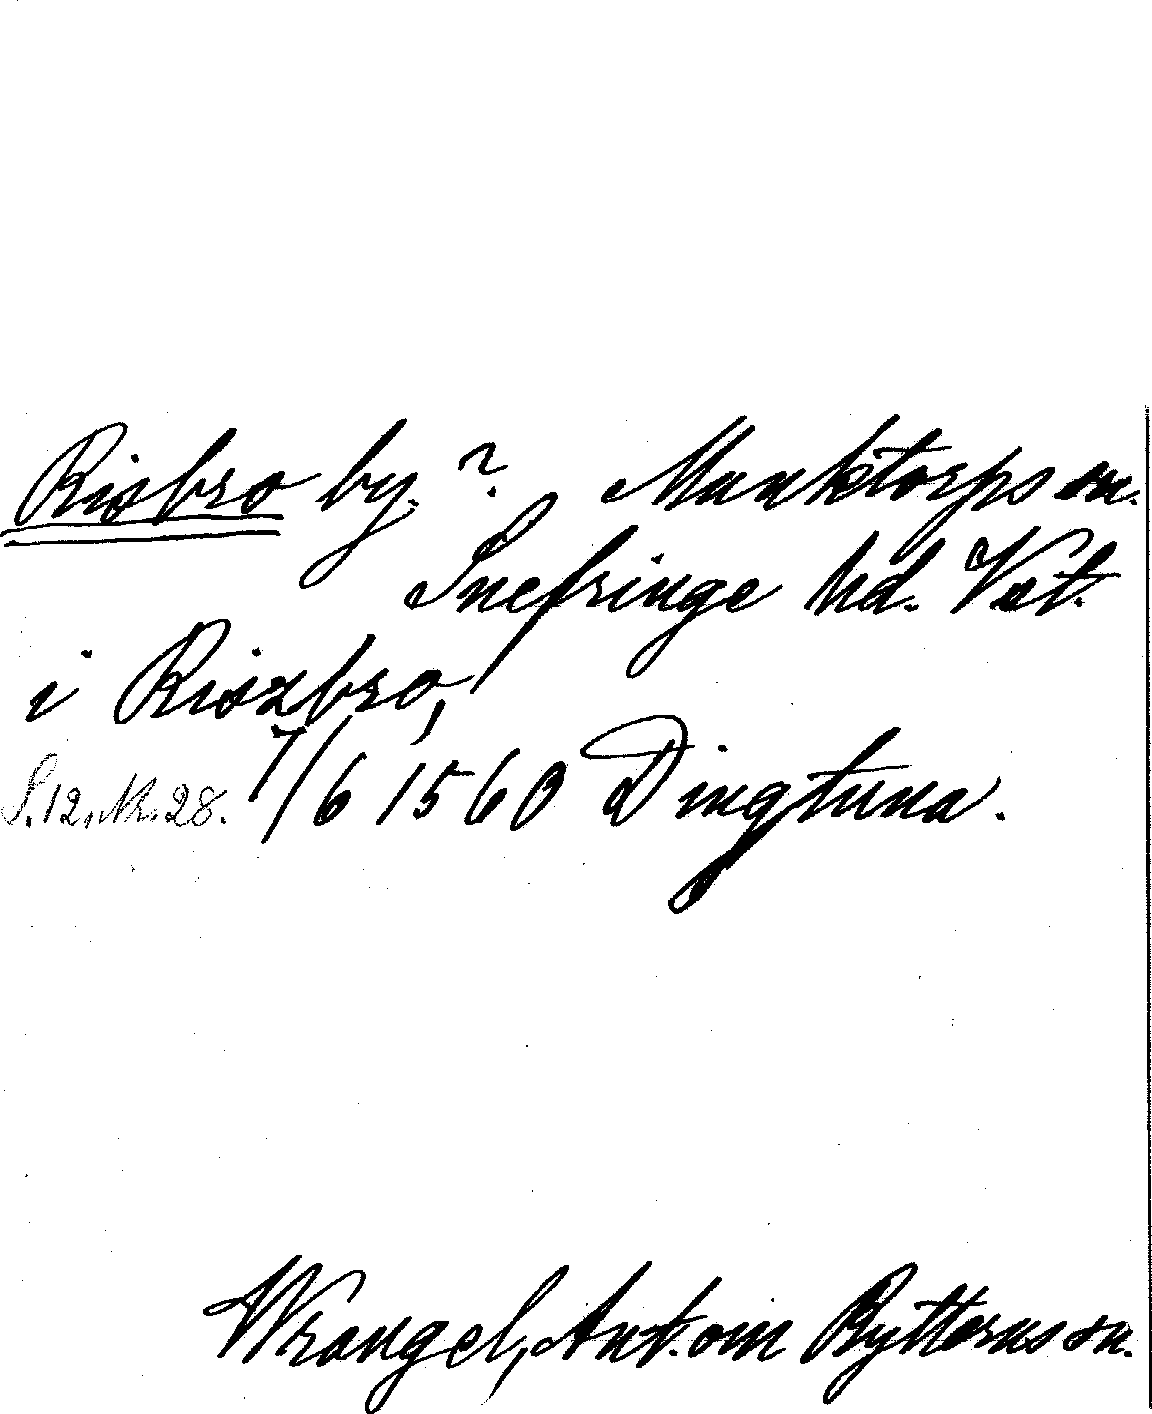 Risbro by.? Munktorps sn.
Snefringe hd. Vst.
i Riszbro,
S. 12, Nr. 28. 7/6 1560 Dingtuna.
Wrangel, Ant. om Ryttorns sn.